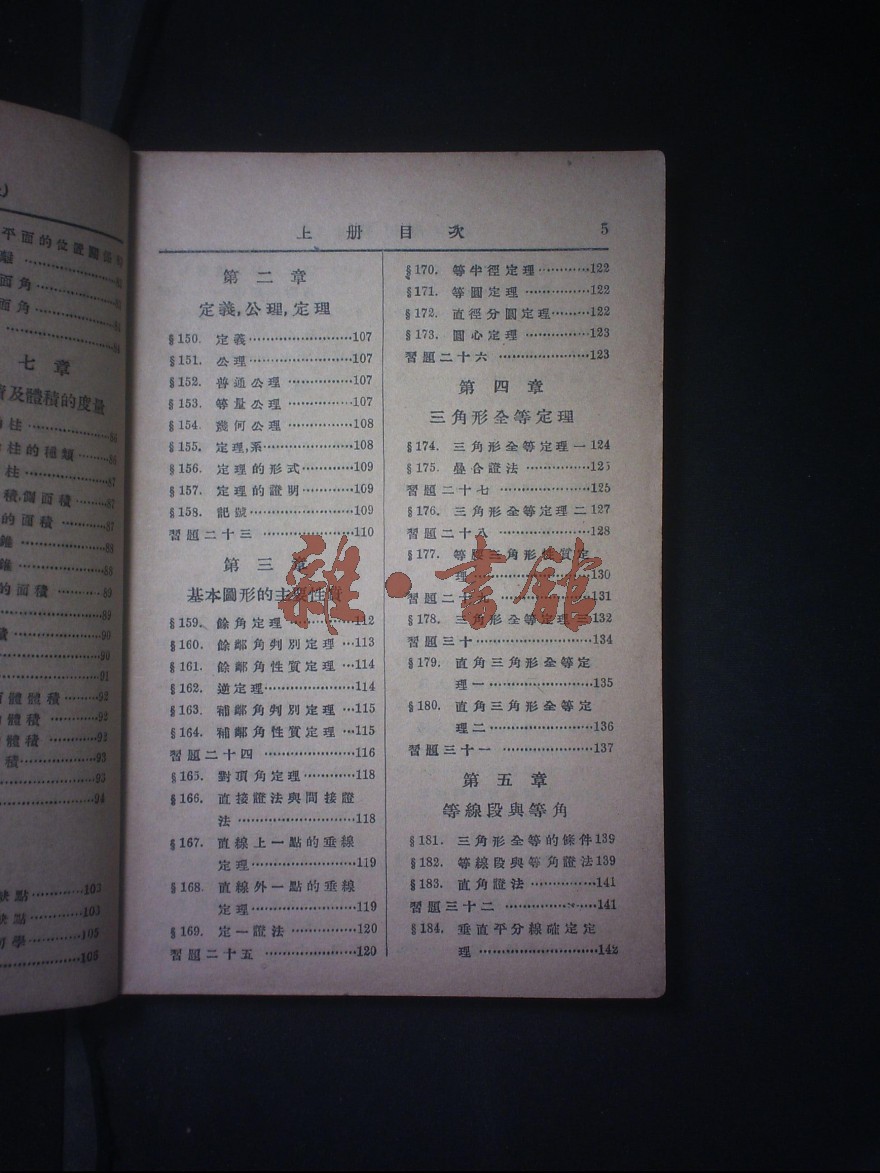 平面的位置關係
面角
面角
七章
及體積的度量
柱
柱的種類
柱
積,側面積
87
的面積
87
錐
88
錐
88
的面積
89
89
積
90
90
91
體體積
92
體積
92
體積
92
積
93
93
94
缺點
103
缺點
103
學
105
105
上冊目次
5
第二章
定義,公理,定理
§150. 定義……107
§151. 公理……107
§152. 普通公理……107
§153. 等量公理……107
§154 幾何公理……108
§155. 定理,系……108
§156. 定理的形式……109
§157. 定理的證明……109
§158. 記號……109
習題二十三……110
第三章
基本圖形的主要性質
§159. 餘角定理……112
§160. 餘鄰角判別定理…113
§161. 餘鄰角性質定理…114
§162. 逆定理……114
§163. 補鄰角判別定理…115
§164. 補鄰角性質定理…115
習題二十四……116
§165. 對頂角定理……118
§166. 直接證法與間接證
法……118
§167. 直線上一點的垂線
定理……119
§168. 直線外一點的垂線
定理……119
§169. 定一證法……120
習題二十五……120
§170. 等半徑定理……122
§171. 等圓定理……122
§172. 直徑分圓定理……122
§173. 圓心定理……123
習題二十六……123
第四章
三角形全等定理
§174. 三角形全等定理一124
§175. 疊合證法……125
習題二十七……125
§176. 三角形全等定理二127
習題二十八……128
§177. 等腰三角形性質定
理……130
習題二十九……131
§178. 三角形全等定理三132
習題三十……134
§179. 直角三角形全等定
理一……135
§180. 直角三角形全等定
理二……136
習題三十一……137
第五章
等線段與等角
§181. 三角形全等的條件139
§182. 等線段與等角證法139
§183. 直角證法……141
習題三十二……141
§184. 垂直平分線確定定
理……142
雜·書館